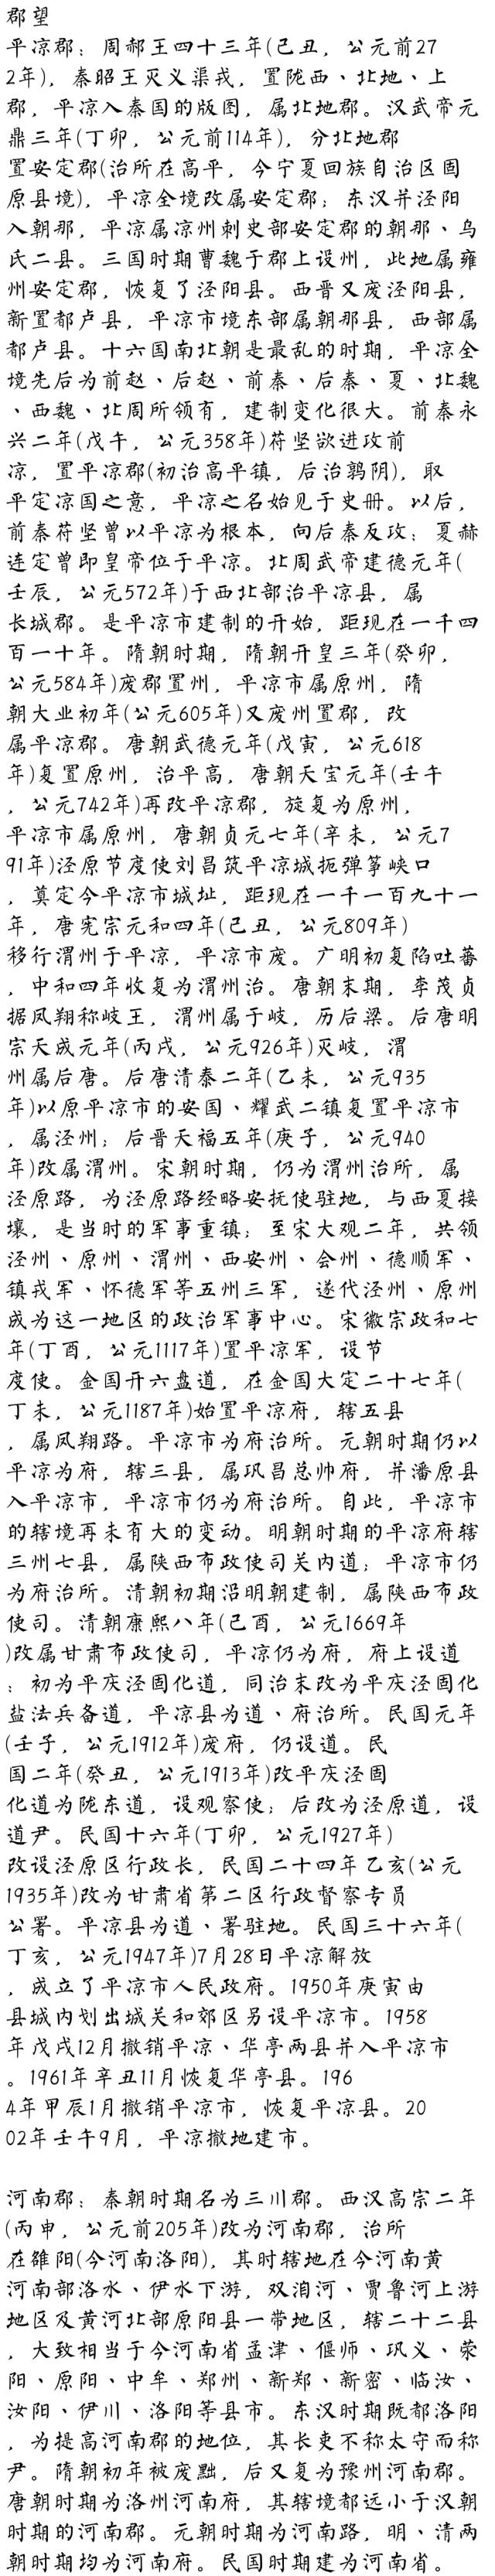 郡望
平凉郡：周郝王四十三年(己丑，公元前27
2年)，秦昭王灭义渠戎，置陇西、北地、上
郡，平凉入秦国的版图，属北地郡。汉武帝元
鼎三年(丁卯，公元前114年)，分北地郡
置安定郡(治所在高平，今宁夏回族自治区固
原县境)，平凉全境改属安定郡；东汉并泾阳
入朝那，平凉属凉州刺史部安定郡的朝那、乌
氏二县。三国时期曹魏于郡上设州，此地属雍
州安定郡，恢复了泾阳县。西晋又废泾阳县，
新置都卢县，平凉市境东部属朝那县，西部属
都卢县。十六国南北朝是最乱的时期，平凉全
境先后为前赵、后赵、前秦、后秦、夏、北魏
、西魏、北周所领有，建制变化很大。前秦永
兴二年(戊午，公元358年)苻坚欲进攻前
凉，置平凉郡(初治高平镇，后治鹑阴)，取
平定凉国之意，平凉之名始见于史册。以后，
前秦苻坚曾以平凉为根本，向后秦反攻；夏赫
连定曾即皇帝位于平凉。北周武帝建德元年(
壬辰，公元572年)于西北部治平凉县，属
长城郡。是平凉市建制的开始，距现在一千四
百一十年。隋朝时期，隋朝开皇三年(癸卯，
公元584年)废郡置州，平凉市属原州，隋
朝大业初年(公元605年)又废州置郡，改
属平凉郡。唐朝武德元年(戊寅，公元618
年)复置原州，治平高，唐朝天宝元年(壬午
，公元742年)再改平凉郡，旋复为原州，
平凉市属原州，唐朝贞元七年(辛未，公元7
91年)泾原节度使刘昌筑平凉城扼弹筝峡口
，奠定今平凉市城址，距现在一千一百九十一
年，唐宪宗元和四年(己丑，公元809年)
移行渭州于平凉，平凉市废。广明初复陷吐蕃
，中和四年收复为渭州治。唐朝末期，李茂贞
据凤翔称岐王，渭州属于岐，历后梁。后唐明
宗天成元年(丙戌，公元926年)灭岐，渭
州属后唐。后唐清泰二年(乙未，公元935
年)以原平凉市的安国、耀武二镇复置平凉市
，属泾州；后晋天福五年(庚子，公元940
年)改属渭州。宋朝时期，仍为渭州治所，属
泾原路，为泾原路经略安抚使驻地，与西夏接
壤，是当时的军事重镇；至宋大观二年，共领
泾州、原州、渭州、西安州、会州、德顺军、
镇戎军、怀德军等五州三军，遂代泾州、原州
成为这一地区的政治军事中心。宋徽宗政和七
年(丁酉，公元1117年)置平凉军，设节
度使。金国开六盘道，在金国大定二十七年(
丁未，公元1187年)始置平凉府，辖五县
，属凤翔路。平凉市为府治所。元朝时期仍以
平凉为府，辖三县，属巩昌总帅府，并潘原县
入平凉市，平凉市仍为府治所。自此，平凉市
的辖境再未有大的变动。明朝时期的平凉府辖
三州七县，属陕西布政使司关内道；平凉市仍
为府治所。清朝初期沿明朝建制，属陕西布政
使司。清朝康熙八年(己酉，公元1669年
)改属甘肃布政使司，平凉仍为府，府上设道
；初为平庆泾固化道，同治末改为平庆泾固化
盐法兵备道，平凉县为道、府治所。民国元年
(壬子，公元1912年)废府，仍设道。民
国二年(癸丑，公元1913年)改平庆泾固
化道为陇东道，设观察使；后改为泾原道，设
道尹。民国十六年(丁卯，公元1927年)
改设泾原区行政长，民国二十四年乙亥(公元
1935年)改为甘肃省第二区行政督察专员
公署。平凉县为道、署驻地。民国三十六年(
丁亥，公元1947年)7月28日平凉解放
，成立了平凉市人民政府。1950年庚寅由
县城内划出城关和郊区另设平凉市。1958
年戊戌12月撤销平凉、华亭两县并入平凉市
。1961年辛丑11月恢复华亭县。196
4年甲辰1月撤销平凉市，恢复平凉县。20
02年壬午9月，平凉撤地建市。
河南郡：秦朝时期名为三川郡。西汉高宗二年
(丙申，公元前205年)改为河南郡，治所
在雒阳(今河南洛阳)，其时辖地在今河南黄
河南部洛水、伊水下游，双洎河、贾鲁河上游
地区及黄河北部原阳县一带地区，辖二十二县
，大致相当于今河南省孟津、偃师、巩义、荥
阳、原阳、中牟、郑州、新郑、新密、临汝、
汝阳、伊川、洛阳等县市。东汉时期既都洛阳
，为提高河南郡的地位，其长吏不称太守而称
尹。隋朝初年被废黜，后又复为豫州河南郡。
唐朝时期为洛州河南府，其辖境都远小于汉朝
时期的河南郡。元朝时期为河南路，明、清两
朝时期均为河南府。民国时期建为河南省。